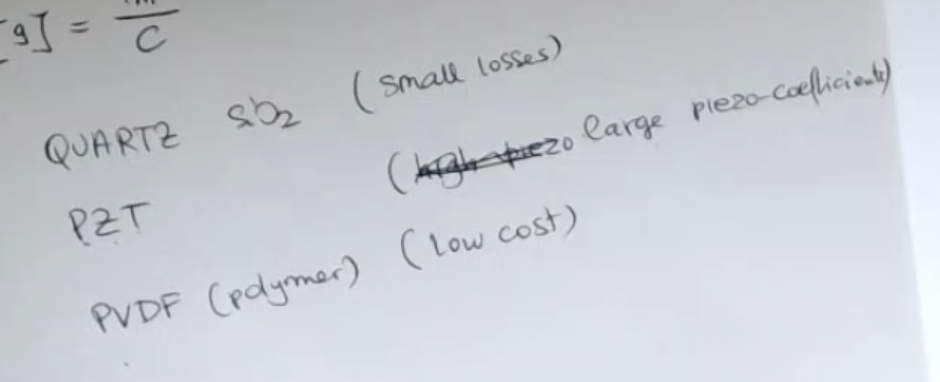 [g] = m/C
QUARTZ SiO2 (small losses)
PZT (high piezo large piezo-coefficients)
PVDF (polymer) (low cost)